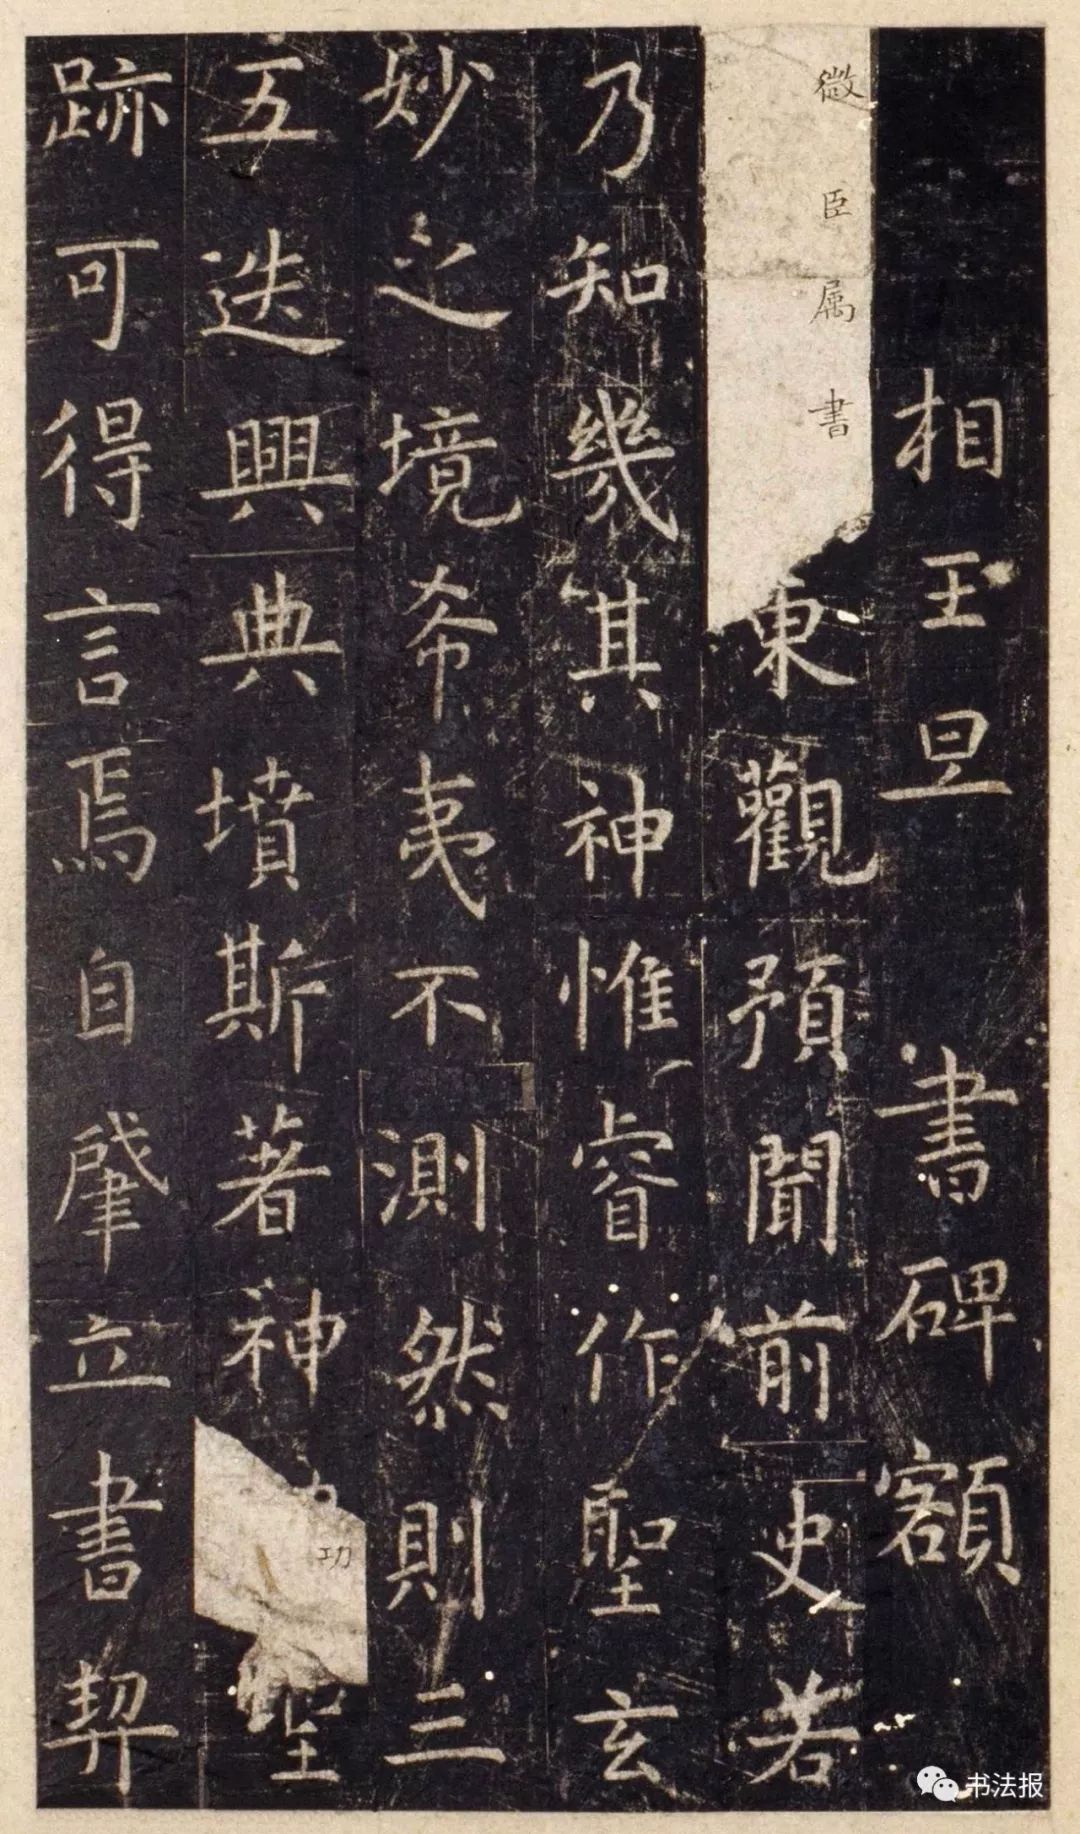 相王旦書碑額
微臣属書
東觀預聞前史若
乃知幾其神惟睿作聖玄
妙之境希夷不測然則三
五迭興典墳斯著神
功
聖
跡可得言焉自肇立書契
书法报